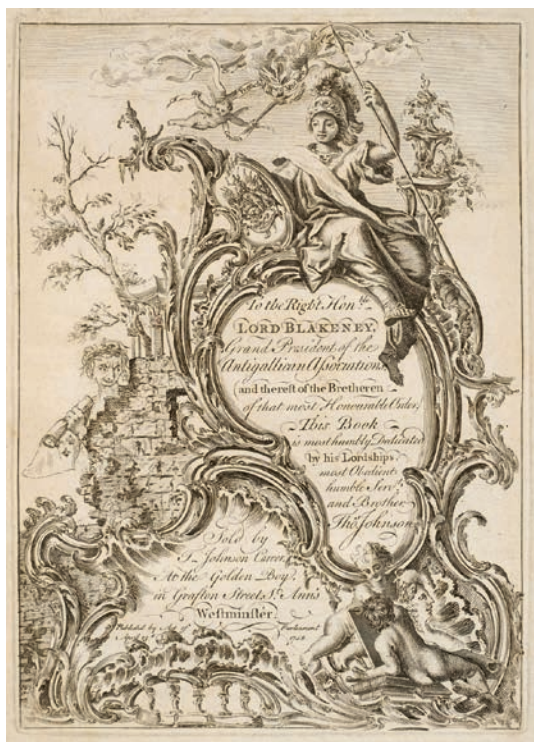 To the Right Hon.ble
LORD BLAKENEY,
Grand President of the
Antigallican Associations,
and the rest of the Bretheren
of that most Honourable Order,
This Book
is most humbly Dedicated
by his Lordships
most Obedient
humble Serv.t
and Brother
Tho.s Johnson
Sold by
T. Johnson Carver,
At the Golden Boy,
in Grafton Street St. Ann's
Westminster.
Published by Act of Parliament
April